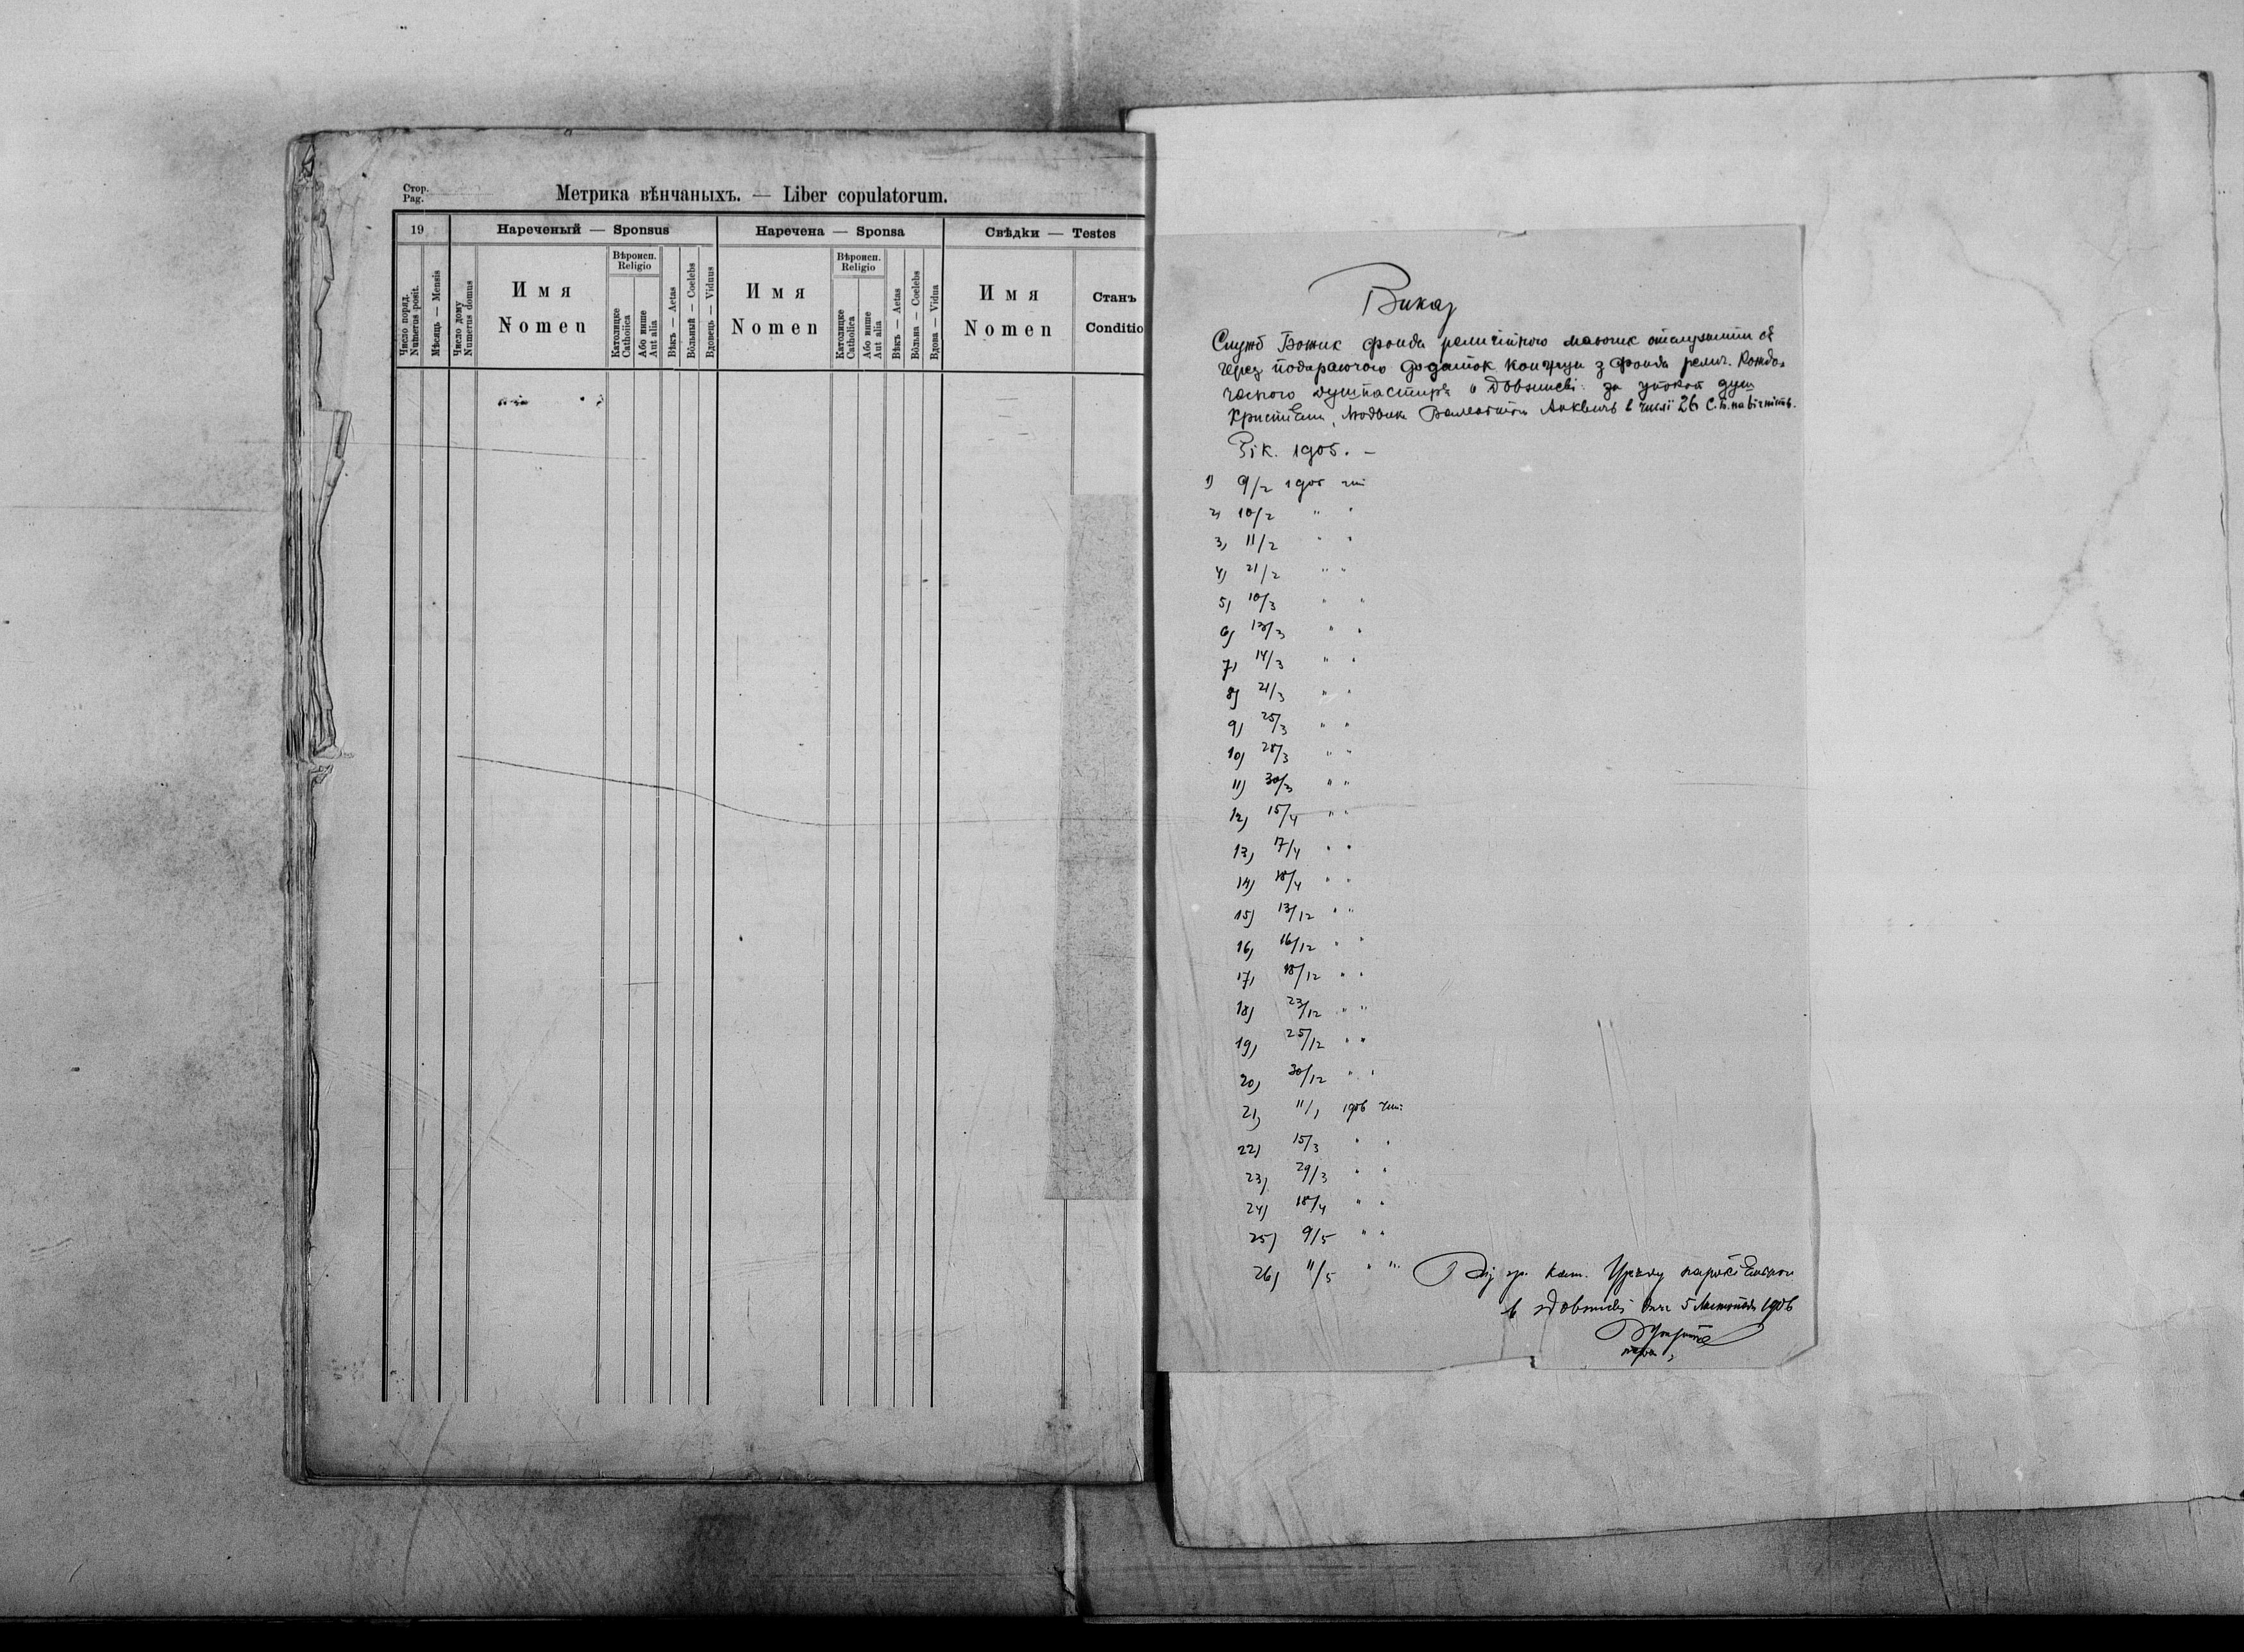 Стор.
Pag.
Метрика вѣнчаныхъ. — Liber copulatorum.
19
Нареченый — Sponsus
Наречена — Sponsa
Свѣдки — Testes
Число поряд.
Numerus posit.
Мѣсяць — Mensis
Число дому
Numerus domus
Имя
Nomen
Вѣроисп.
Religio
Католицке
Catholica
Або инше
Aut alia
Вѣкъ — Aetas
Вôльный — Coelebs
Вдовець — Viduus
Имя
Nomen
Вѣроисп.
Religio
Католицке
Catholica
Або инше
Aut alia
Вѣкъ — Aetas
Вôльна — Coelebs
Вдова — Vidua
Имя
Nomen
Станъ
Conditio
Виказ
Служб Божих фонда релиґійного маючих отслужити ся
через побираючого додаток конґруи з фонда релиґ. кождо-
часного душпастиря в Довжневі за упокой душ
в числї 26 С. Б. на вічність.
Рік. 1905. –
1) 9/2 1905 чит
2) 10/2 " "
3) 11/2 " "
4) 21/2 " "
5) 10/3 " "
6) 13/3 " "
7) 14/3 " "
8) 21/3 " "
9) 25/3 " "
10) 28/3 " "
11) 30/3 " "
12) 15/4 " "
13) 17/4 " "
14) 18/4 " "
15) 13/12 " "
16) 16/12 " "
17) 18/12 " "
18) 23/12 " "
19) 25/12 " "
20) 30/12 " "
21) 11/1 1906 чит:
22) 15/3 " "
23) 29/3 " "
24) 18/4 " "
25) 9/5 " "
26) 11/5 " "
Від гр. кат. Уряду парохіяльного
в Довжневі дня 5 Листопада 1906